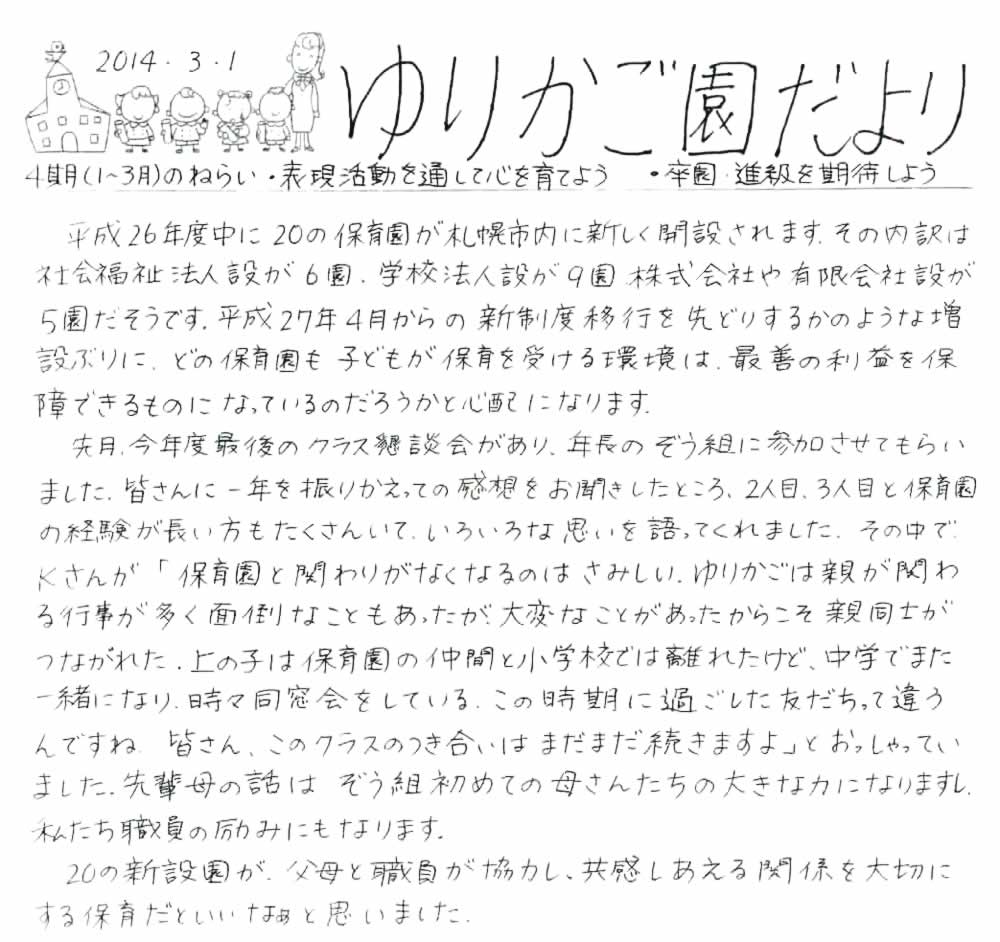 2014.3.1
ゆりかご園だより
4期(1~3月)のねらい・表現活動を通して心を育てよう ・卒園・進級を期待しよう
平成26年度中に20の保育園が札幌市内に新しく開設されます.その内訳は
社会福祉法人設が6園.学校法人設が9園 株式会社や有限会社設が
5園だそうです.平成27年4月からの新制度移行を先どりするかのような増
設ぶりに.どの保育園も子どもが保育を受ける環境は.最善の利益を保
障できるものになっているのだろうかと心配になります.
先月.今年度最後のクラス懇談会があり、年長のぞう組に参加させてもらい
ました.皆さんに一年を振りかえっての感想をお聞きしたところ、2人目、3人目と保育園
の経験が長い方もたくさんいて.いろいろな思いを語ってくれました.その中で.
Kさんが「保育園と関わりがなくなるのはさみしい.ゆりかごは親が関わ
る行事が多く面倒なこともあったが、大変なことがあったからこそ親同士が
つながれた.上の子は保育園の仲間と小学校では離れたけど、中学でまた
一緒になり.時々同窓会をしている.この時期に過ごした友だちって違う
んですね.皆さん、このクラスのつき合いはまだまだ続きますよ」とおっしゃってい
ました.先輩母の話は ぞう組初めての母さんたちの大きな力になりますし.
私たち職員の励みにもなります.
20の新設園が.父母と職員が協力し、共感しあえる関係を大切に
する保育だといいなぁと思いました.